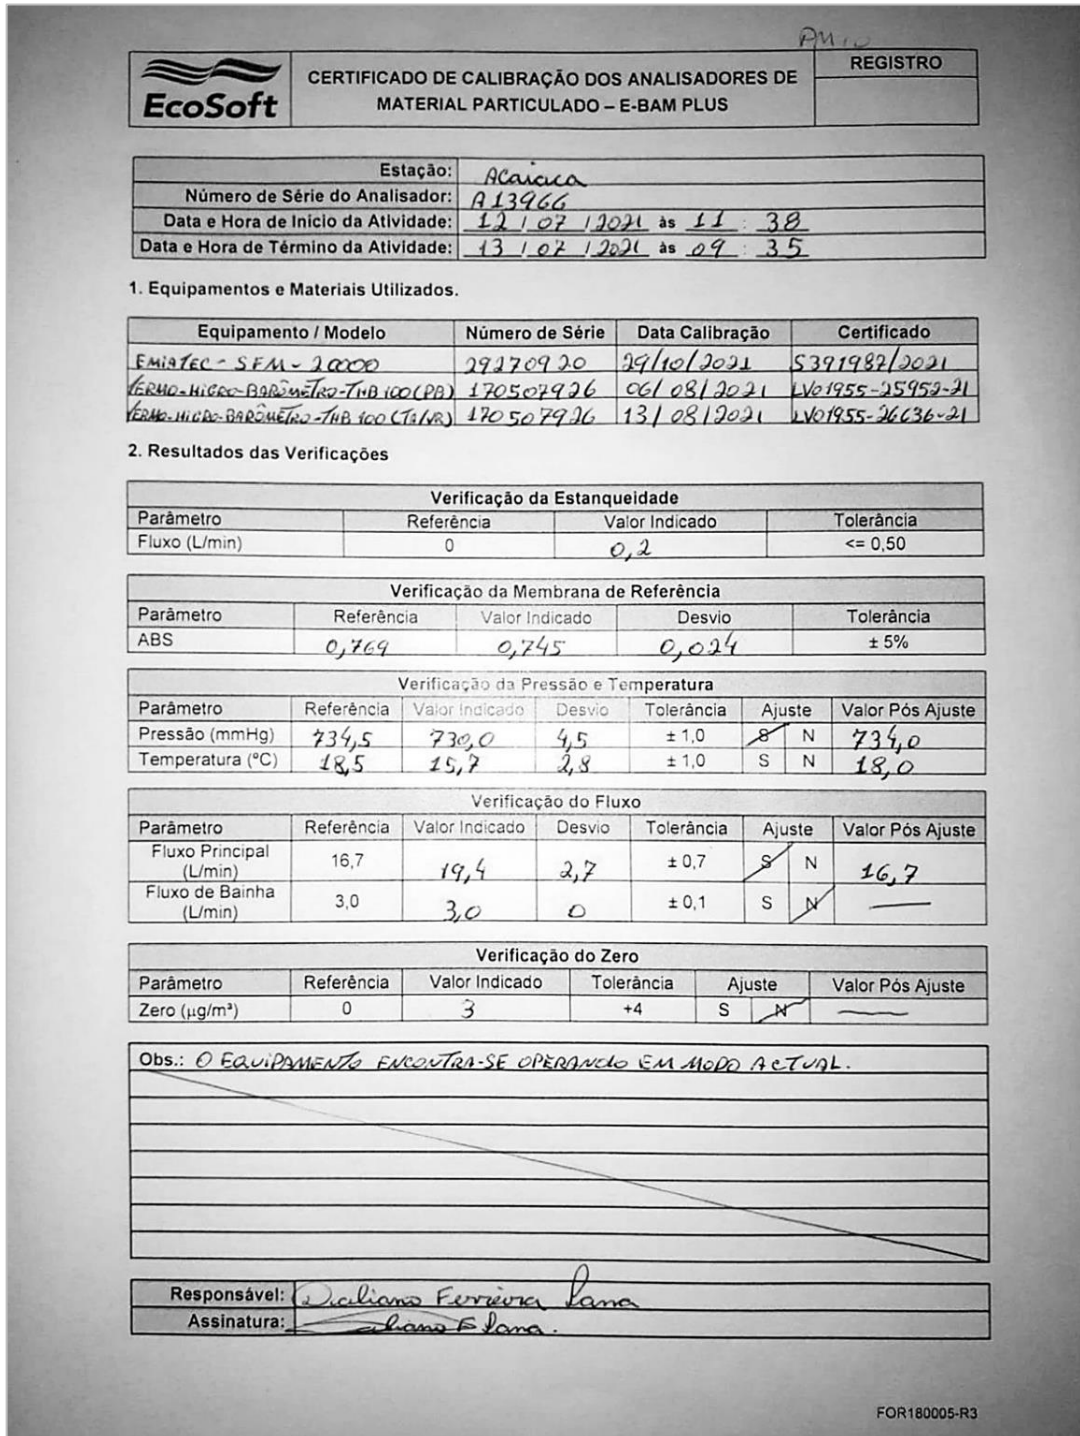 PM10
EcoSoft
CERTIFICADO DE CALIBRAÇÃO DOS ANALISADORES DE
MATERIAL PARTICULADO – E-BAM PLUS
REGISTRO
Estação: Acaiaca
Número de Série do Analisador: A13966
Data e Hora de Inicio da Atividade: 12 / 07 / 2021 às 11 : 38
Data e Hora de Término da Atividade: 13 / 07 / 2021 às 09 : 35
1. Equipamentos e Materiais Utilizados.
Equipamento / Modelo Número de Série Data Calibração Certificado
EMIATEC - SFM - 20000 29270920 29/10/2021 S391987/2021
TERMO-HIGRO-BARÔMETRO-THB 100 (PB) 170507926 06/08/2021 LV01955-25952-21
TERMO-HIGRO-BARÔMETRO-THB 100 (TA/VR) 170507926 13/08/2021 LV01955-26636-21
2. Resultados das Verificações
Verificação da Estanqueidade
Parâmetro Referência Valor Indicado Tolerância
Fluxo (L/min) 0 0,2 <= 0,50
Verificação da Membrana de Referência
Parâmetro Referência Valor Indicado Desvio Tolerância
ABS 0,769 0,745 0,024 ± 5%
Verificação da Pressão e Temperatura
Parâmetro Referência Valor Indicado Desvio Tolerância Ajuste Valor Pós Ajuste
Pressão (mmHg) 734,5 730,0 4,5 ± 1,0 S N 734,0
Temperatura (ºC) 18,5 15,7 2,8 ± 1,0 S N 18,0
Verificação do Fluxo
Parâmetro Referência Valor Indicado Desvio Tolerância Ajuste Valor Pós Ajuste
Fluxo Principal
(L/min) 16,7 19,4 2,7 ± 0,7 S N 16,7
Fluxo de Bainha
(L/min) 3,0 3,0 0 ± 0,1 S N —
Verificação do Zero
Parâmetro Referência Valor Indicado Tolerância Ajuste Valor Pós Ajuste
Zero (µg/m³) 0 3 +4 S N —
Obs.: O EQUIPAMENTO ENCONTRA-SE OPERANDO EM MODO ACTUAL.
Responsável: Daliano Ferreira Lana
Assinatura: Daliano F Lana.
FOR180005-R3